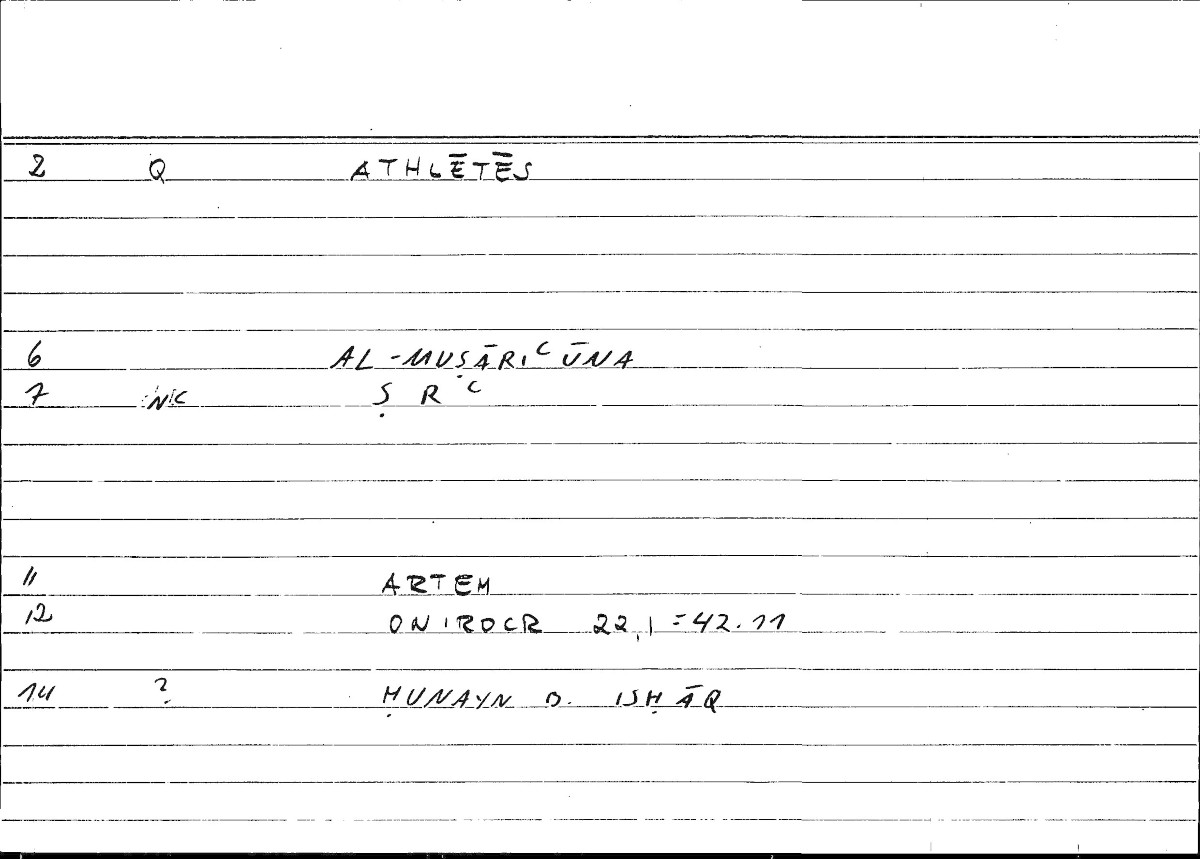 2 Q ATHLĒTĒS
6 AL-MUṢĀRIʿŪNA
7 NC Ṣ R ʿ
11 ARTEM
12 ONIROCR 22,1 = 42.11
14 ? ḤUNAYN B. ISḤĀQ